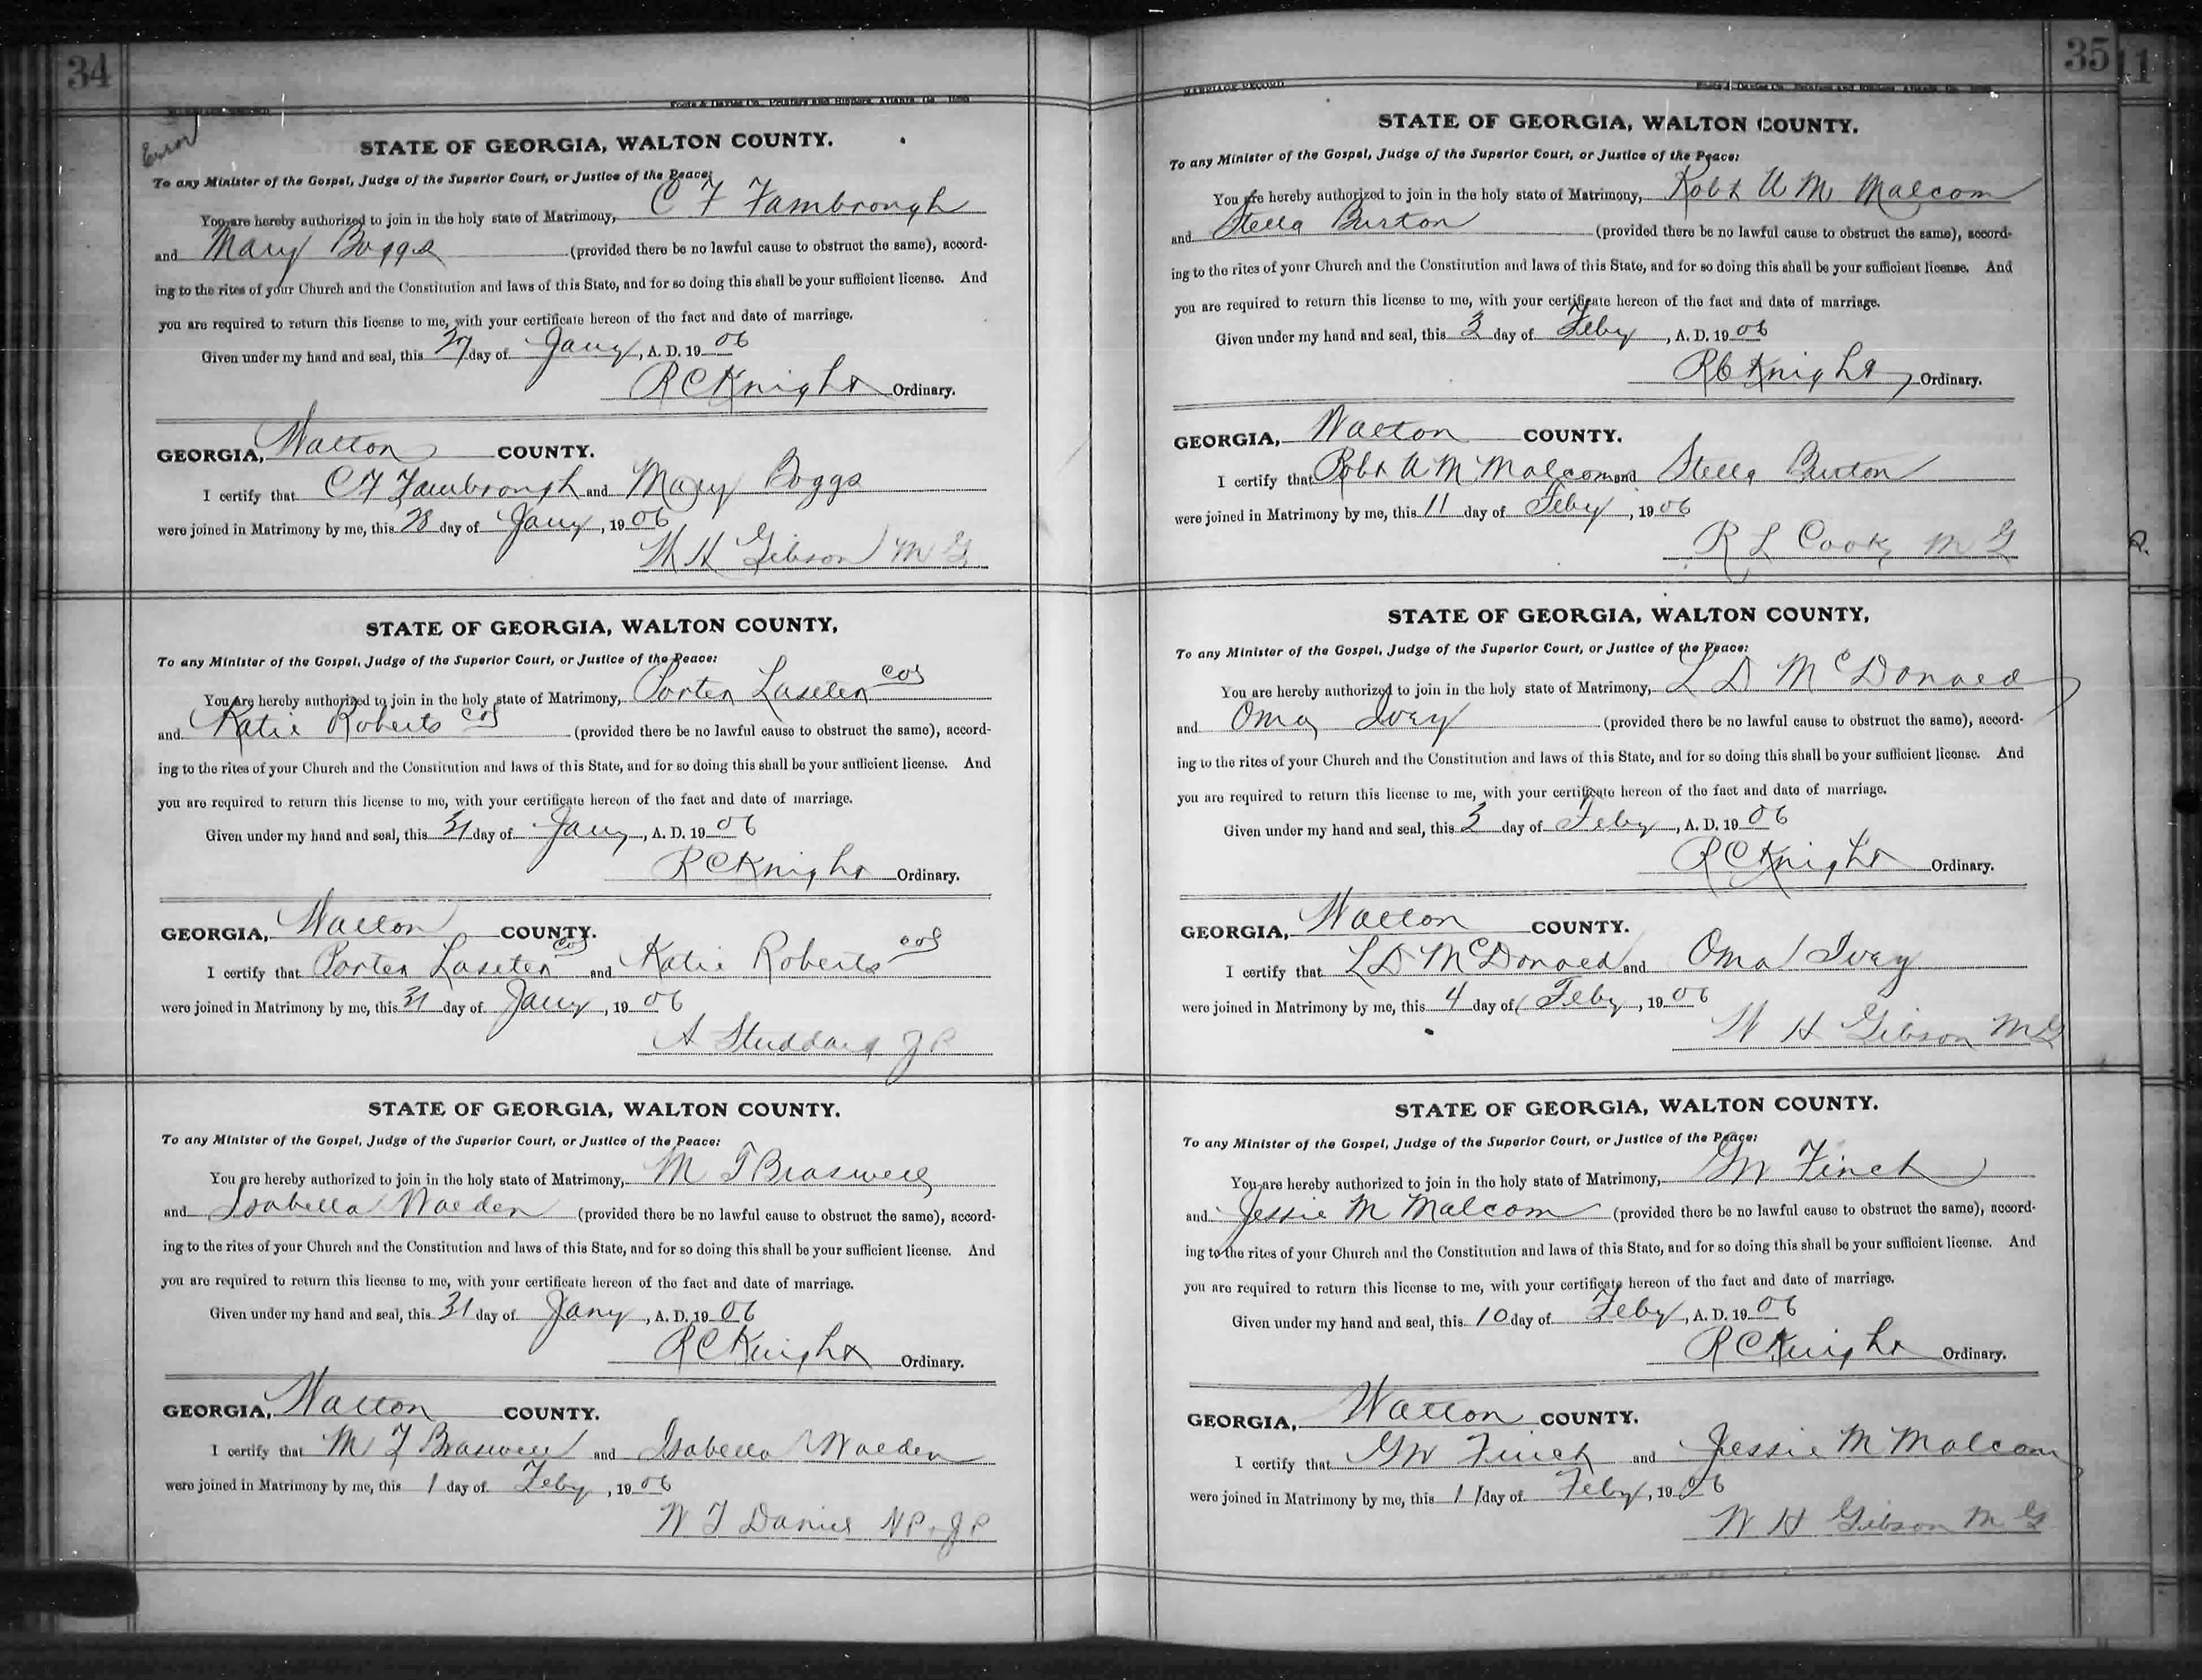 34
Error
STATE OF GEORGIA, WALTON COUNTY.
To any Minister of the Gospel, Judge of the Superior Court, or Justice of the Peace:
You are hereby authorized to join in the holy state of Matrimony, C F Fambrough
and Mary Boggs (provided there be no lawful cause to obstruct the same), accord-
ing to the rites of your Church and the Constitution and laws of this State, and for so doing this shall be your sufficient license. And
you are required to return this license to me, with your certificate hereon of the fact and date of marriage.
Given under my hand and seal, this 27 day of Jany, A. D. 1906
R C Knight Ordinary.
GEORGIA, Walton COUNTY.
I certify that C F Fambrough and Mary Boggs
were joined in Matrimony by me, this 28 day of Jany, 1906
W H Gibson M G
STATE OF GEORGIA, WALTON COUNTY,
To any Minister of the Gospel, Judge of the Superior Court, or Justice of the Peace:
You are hereby authorized to join in the holy state of Matrimony, Porter Laseter col
and Katie Roberts col (provided there be no lawful cause to obstruct the same), accord-
ing to the rites of your Church and the Constitution and laws of this State, and for so doing this shall be your sufficient license. And
you are required to return this license to me, with your certificate hereon of the fact and date of marriage.
Given under my hand and seal, this 31 day of Jany, A. D. 1906
R C Knight Ordinary.
GEORGIA, Walton COUNTY.
I certify that Porter Laseter col and Katie Roberts col
were joined in Matrimony by me, this 31 day of Jany, 1906
A Studdard J P
STATE OF GEORGIA, WALTON COUNTY.
To any Minister of the Gospel, Judge of the Superior Court, or Justice of the Peace:
You are hereby authorized to join in the holy state of Matrimony, M T Braswell
and Isabella Walden (provided there be no lawful cause to obstruct the same), accord-
ing to the rites of your Church and the Constitution and laws of this State, and for so doing this shall be your sufficient license. And
you are required to return this license to me, with your certificate hereon of the fact and date of marriage.
Given under my hand and seal, this 31 day of Jany, A. D. 1906
R C Knight Ordinary.
GEORGIA, Walton COUNTY.
I certify that M T Braswell and Isabella Walden
were joined in Matrimony by me, this 1 day of Feby, 1906
W T Daniel N P & J P
35
11
MARRIAGE RECORD
STATE OF GEORGIA, WALTON COUNTY.
To any Minister of the Gospel, Judge of the Superior Court, or Justice of the Peace:
You are hereby authorized to join in the holy state of Matrimony, Robt A M Malcom
and Stella Burton (provided there be no lawful cause to obstruct the same), accord-
ing to the rites of your Church and the Constitution and laws of this State, and for so doing this shall be your sufficient license. And
you are required to return this license to me, with your certificate hereon of the fact and date of marriage.
Given under my hand and seal, this 3 day of Feby, A. D. 1906
R C Knight, Ordinary.
GEORGIA, Walton COUNTY.
I certify that Robt A M Malcom and Stella Burton
were joined in Matrimony by me, this 11 day of Feby, 1906
R L Cook M G
STATE OF GEORGIA, WALTON COUNTY,
To any Minister of the Gospel, Judge of the Superior Court, or Justice of the Peace:
You are hereby authorized to join in the holy state of Matrimony, L D McDonald
and Oma Ivey (provided there be no lawful cause to obstruct the same), accord-
ing to the rites of your Church and the Constitution and laws of this State, and for so doing this shall be your sufficient license. And
you are required to return this license to me, with your certificate hereon of the fact and date of marriage.
Given under my hand and seal, this 3 day of Feby, A. D. 1906
R C Knight Ordinary.
GEORGIA, Walton COUNTY.
I certify that L D McDonald and Oma Ivey
were joined in Matrimony by me, this 4 day of Feby, 1906
W H Gibson M G
STATE OF GEORGIA, WALTON COUNTY.
To any Minister of the Gospel, Judge of the Superior Court, or Justice of the Peace:
You are hereby authorized to join in the holy state of Matrimony, G W Finch
and Jessie M Malcom (provided there be no lawful cause to obstruct the same), accord-
ing to the rites of your Church and the Constitution and laws of this State, and for so doing this shall be your sufficient license. And
you are required to return this license to me, with your certificate hereon of the fact and date of marriage.
Given under my hand and seal, this 10 day of Feby, A. D. 1906
R C Knight Ordinary.
GEORGIA, Walton COUNTY.
I certify that G W Finch and Jessie M Malcom
were joined in Matrimony by me, this 11 day of Feby, 1906
W H Gibson M G